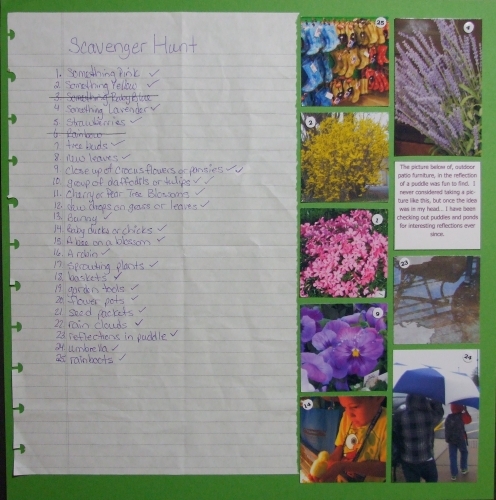 Scavenger Hunt
1. Something Pink ✓
2. Something Yellow ✓
3. Something Baby Blue
4. Something Lavender ✓
5. Strawberries ✓
6. Rainbow
7. tree buds ✓
8. new leaves ✓
9. close up of crocus flowers or pansies ✓✓
10. group of daffodils or tulips ✓
11. Cherry or Pear Tree Blossoms ✓
12. dew drops on grass or leaves ✓
13. Bunny ✓
14. Baby ducks or chicks ✓
15. A bee on a blossom ✓
16. A robin ✓
17. Sprouting plants ✓
18. baskets ✓
19. garden tools ✓
20. flower pots ✓
21. Seed packets ✓
22. rain clouds ✓
23. reflections in puddle ✓
24. umbrella ✓
25. rainboots ✓
25
2
1
9
14
4
The picture below of, outdoor
patio furniture, in the reflection
of a puddle was fun to find. I
never considered taking a pic-
ture like this, but once the idea
was in my head.. I have been
checking out puddles and ponds
for interesting reflections ever
since.
23
24